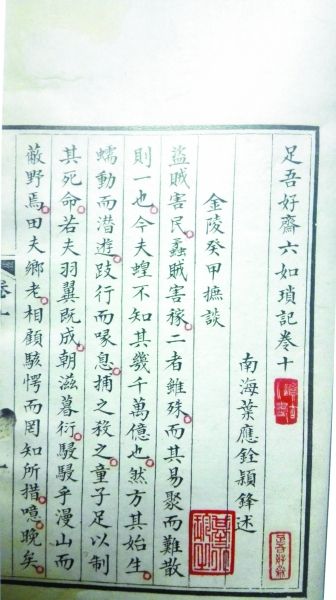 足吾好齋六如瑣記卷十
南海葉應銓穎鋒述
金陵癸甲摭談
盜賊害民蟊賊害稼二者雖殊而其易聚而難散
則一也今夫蝗不知其幾千萬億也然方其始生
蠕動而潛遊跂行而喙息捕之殺之童子足以制
其死命若夫羽翼既成朝滋暮衍駸駸乎漫山而
蔽野焉田夫鄉老相顧駭愕而罔知所措噫晚矣